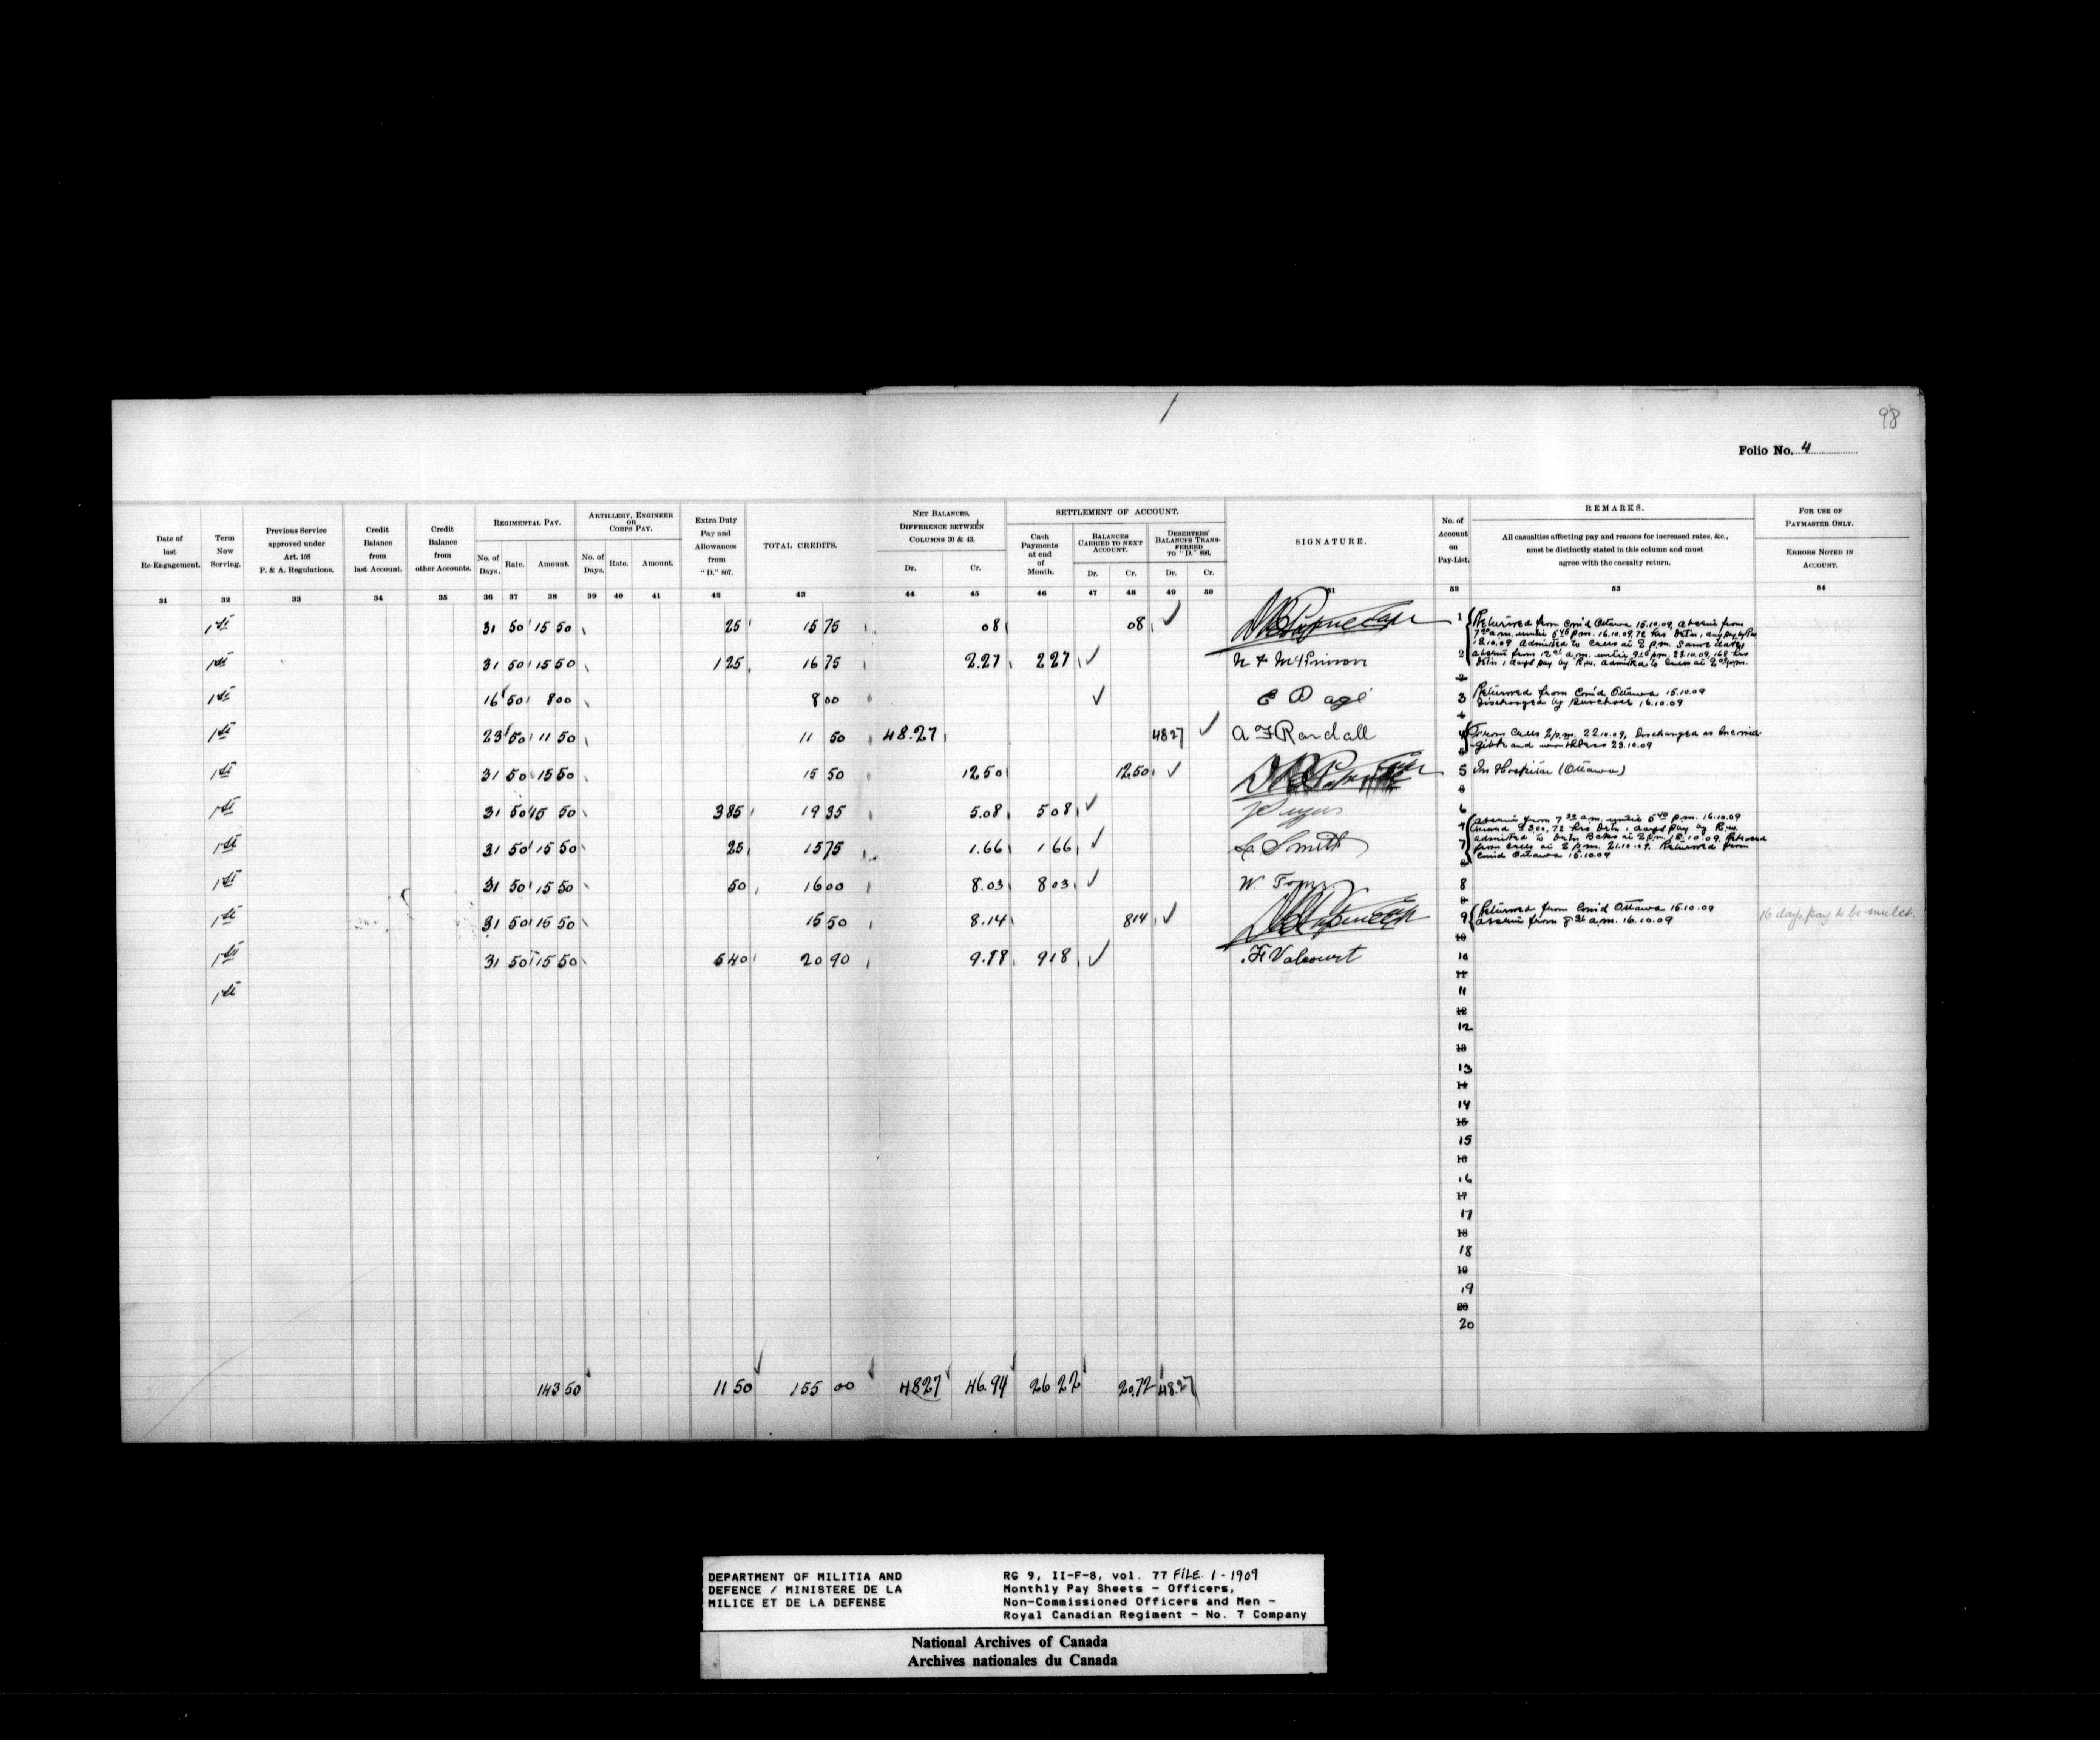 98
Folio No. 4
Date of last Re-Engagement.
Term Now Serving.
Previous Service approved under Art. 158 P. & A. Regulations.
Credit Balance from last Account.
Credit Balance from other Accounts.
REGIMENTAL PAY.
No. of Days. Rate. Amount.
ARTILLERY, ENGINEER OR CORPS PAY.
No. of Days. Rate. Amount.
Extra Duty Pay and Allowances from "D." 807.
TOTAL CREDITS.
NET BALANCES.
DIFFERENCE BETWEEN COLUMNS 30 & 43.
Dr. Cr.
SETTLEMENT OF ACCOUNT.
Cash Payments at end of Month.
BALANCES CARRIED TO NEXT ACCOUNT.
Dr. Cr.
DESERTERS' BALANCES TRANSFERRED TO "D." 806.
Dr. Cr.
SIGNATURE.
No. of Account on Pay-List.
REMARKS.
All casualties affecting pay and reasons for increased rates, &c., must be distinctly stated in this column and must agree with the casualty return.
FOR USE OF PAYMASTER ONLY.
ERRORS NOTED IN ACCOUNT.
31 32 33 34 35 36 37 38 39 40 41 42 43 44 45 46 47 48 49 50 51 52 53 54
1st 31 50 15 50 25 15 75 08 08 1 Returned from Com'd Ottawa 15.10.09, absent from
7 a.m. until 5 p.m. 16.10.09, 72 hrs Detn, 1 days pay by R.W.
18.10.09 admitted to Cells at 2 p.m. same date
1st 31 50 15 50 1 25 16 75 2.27 2 27 2 absent from 12 a.m. until 9 p.m. 22.10.09, 168 hrs
Detn 1 days pay by R.W. admitted to Cells at 2 p.m.
1st 16 50 8 00 8 00 E Page 3 Returned from Com'd Ottawa 15.10.09
Discharged by Purchase 16.10.09
1st 23 50 11 50 11 50 48.27 48 27 A F Randall 4 From Cells 2 p.m. 22.10.09, Discharged as Incorri-
gible and worthless 23.10.09
1st 31 50 15 50 15 50 12.50 12.50 5 In Hospital (Ottawa)
1st 31 50 15 50 3 85 19 35 5.08 5 08 6
1st 31 50 15 50 25 15 75 1.66 1 66 Smith 7 absent from 7 a.m. until 5 p.m. 16.10.09
72 hrs Detn 1 days pay by R.W.
admitted to Detn Bcks at 2 p.m. 18.10.09, Released
from Cells at 2 p.m. 21.10.09. Returned from
Com'd Ottawa 15.10.09
1st 31 50 15 50 50 16 00 8.03 8 03 W. 8
1st 31 50 15 50 15 50 8.14 8 14 9 Returned from Com'd Ottawa 15.10.09
absent from 8 a.m. 16.10.09
16 days pay to be mulct.
1st 31 50 15 50 5 40 20 90 9.18 9 18 F Valcourt 10
1st 11
12
13
14
15
16
17
18
19
20
143 50 11 50 155 00 48 27 46.94 26 22 20.72 48.27
DEPARTMENT OF MILITIA AND
DEFENCE / MINISTERE DE LA
MILICE ET DE LA DEFENSE
RG 9, II-F-8, vol. 77 FILE 1 - 1909
Monthly Pay Sheets - Officers,
Non-Commissioned Officers and Men -
Royal Canadian Regiment - No. 7 Company
National Archives of Canada
Archives nationales du Canada